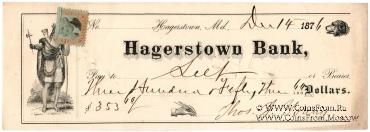 No. Hagerstown, Md. Dec 14 1876
Hagerstown Bank,
Pay to Self or Bearer
Three Hundred Fifty Three 60/100 Dollars.
$ 353 60/
www.CoinsFram.Ru